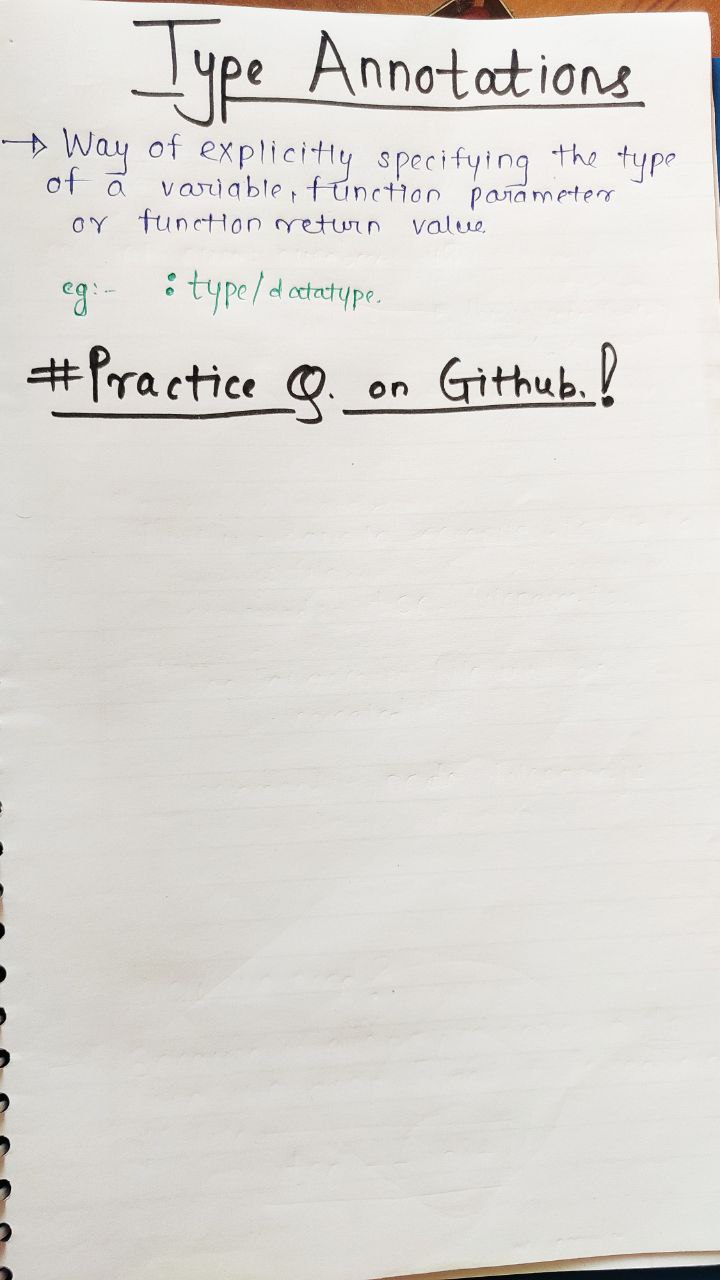 Type Annotations
→ Way of explicitly specifying the type
of a variable, function parameter
or function return value.
eg:- : type/datatype.
#Practice Q. on Github.!